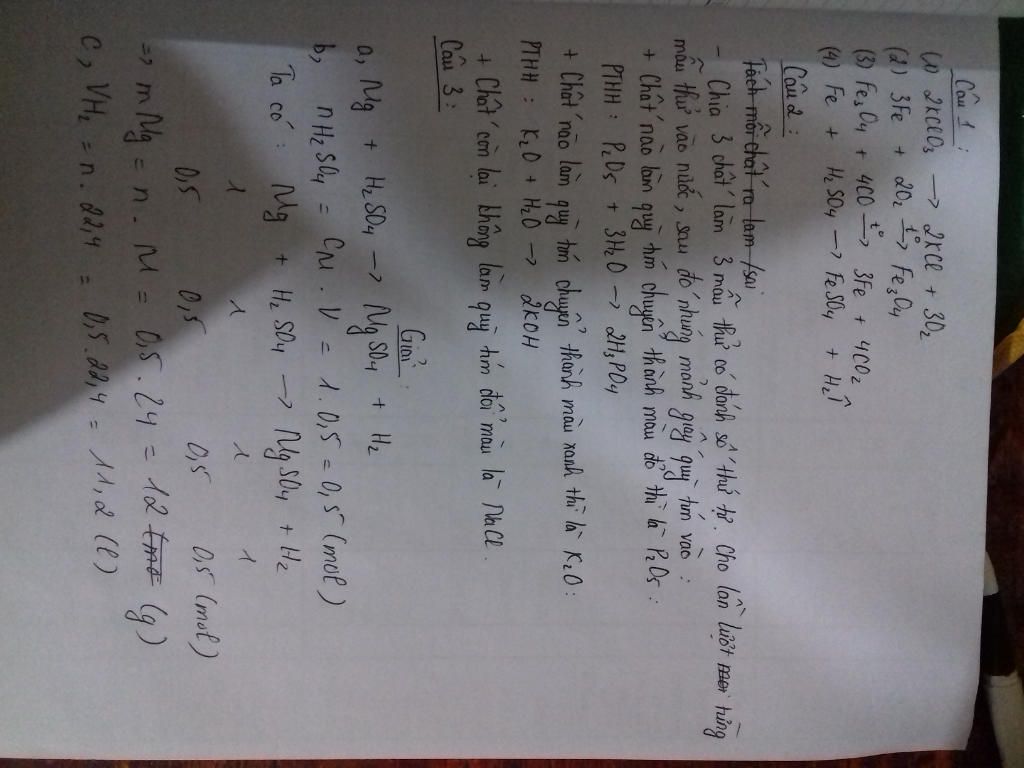 Câu 1:
(1) 2KClO3 → 2KCl + 3O2
(2) 3Fe + 2O2 t°→ Fe3O4
(3) Fe3O4 + 4CO t°→ 3Fe + 4CO2
(4) Fe + H2SO4 → FeSO4 + H2↑
Câu 2:
Tách mỗi chất ra làm
- Chia 3 chất làm 3 mẫu thử có đánh số thứ tự. Cho lần lượt từng
mẫu thử vào nước, sau đó nhúng mảnh giấy quỳ tím vào:
+ Chất nào làm quỳ tím chuyển thành màu đỏ thì là P2O5:
PTHH: P2O5 + 3H2O → 2H3PO4
+ Chất nào làm quỳ tím chuyển thành màu xanh thì là K2O:
PTHH: K2O + H2O → 2KOH
+ Chất còn lại không làm quỳ tím đổi màu là NaCl.
Câu 3:
Giải:
a, Mg + H2SO4 → MgSO4 + H2
b, nH2SO4 = CM . V = 1 . 0,5 = 0,5 (mol)
Ta có: Mg + H2SO4 → MgSO4 + H2
1 1 1 1
0,5 0,5 0,5 0,5 (mol)
=> mMg = n . M = 0,5 . 24 = 12 (g)
c, VH2 = n . 22,4 = 0,5 . 22,4 = 11,2 (l)